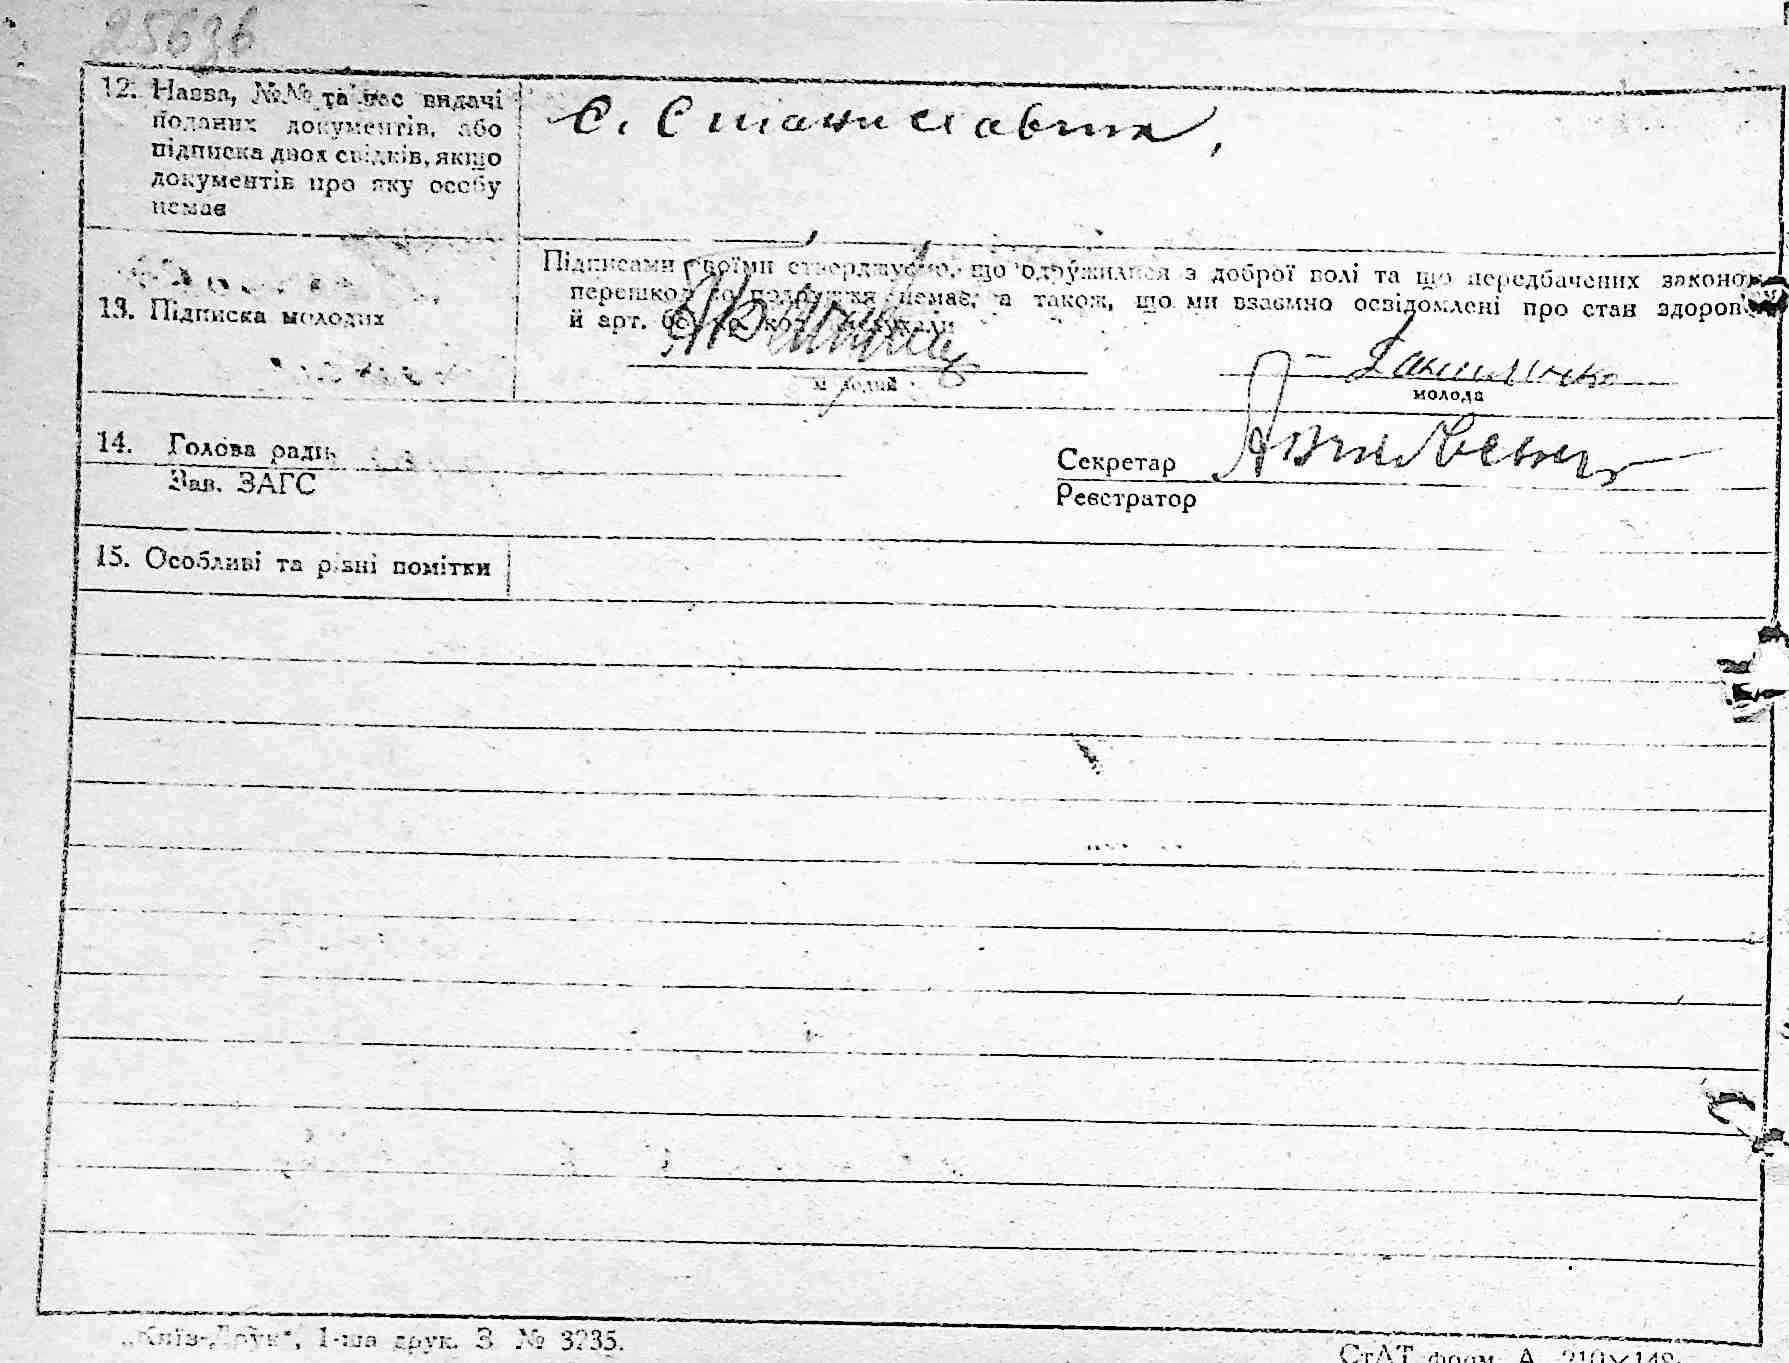 25636
12. Назва, №№ та час видачі
поданих документів, або
підписка двох свідків, якщо
документів про яку особу
немає
С. Станиславчик,
13. Підписка молодих
Підписами своїми стверджуємо, що одружилися з доброї волі та що передбачених законом
перешкод до подружжя немає, а також, що ми взаємно освідомлені про стан здоров'я
й арт.
молодий
молода
14. Голова радив
Зав. ЗАГС
Секретар
Реєстратор
15. Особливі та різні помітки
„Київ-Друк“, 1-ша друк. З № 3235.
СтАТ форм. А 210×148